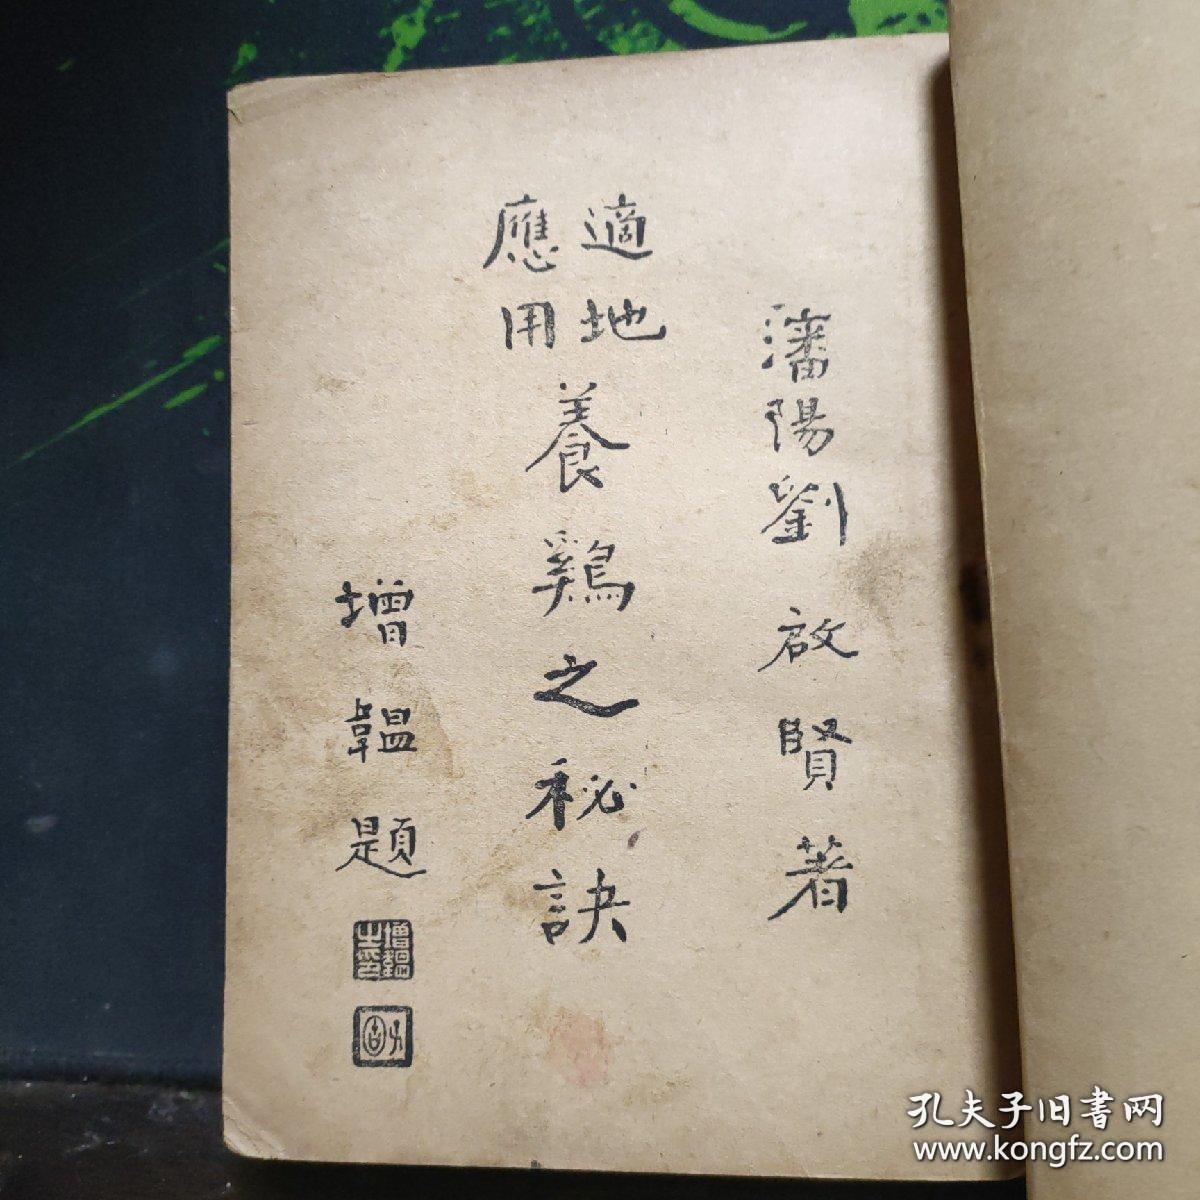 瀋陽劉啟賢著
適地
應用
養鷄之秘訣
增韞題
增韞之印
孔夫子旧书网
www.kongfz.com